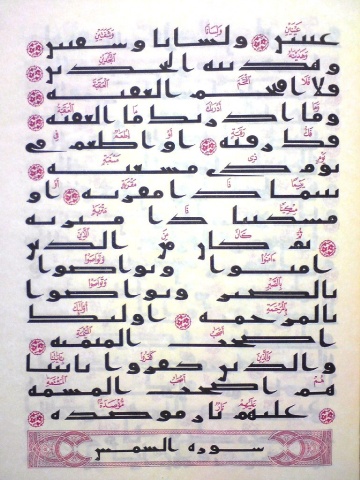 عينين ولسانا وشفتين
وهدينه النجدين
فلا اقتحم العقبه
وما ادريك ما العقبه
فك رقبه او اطعم في
يوم ذي مسغبه
يتيما ذا مقربه او
مسكينا ذا متربه
ثم كان من الذين
امنوا وتواصوا
بالصبر وتواصوا
بالمرحمه اوليك
اصحب الميمنه
والذين كفروا بايتنا
هم اصحب المشمه
عليهم نار موصده
سوره الشمس